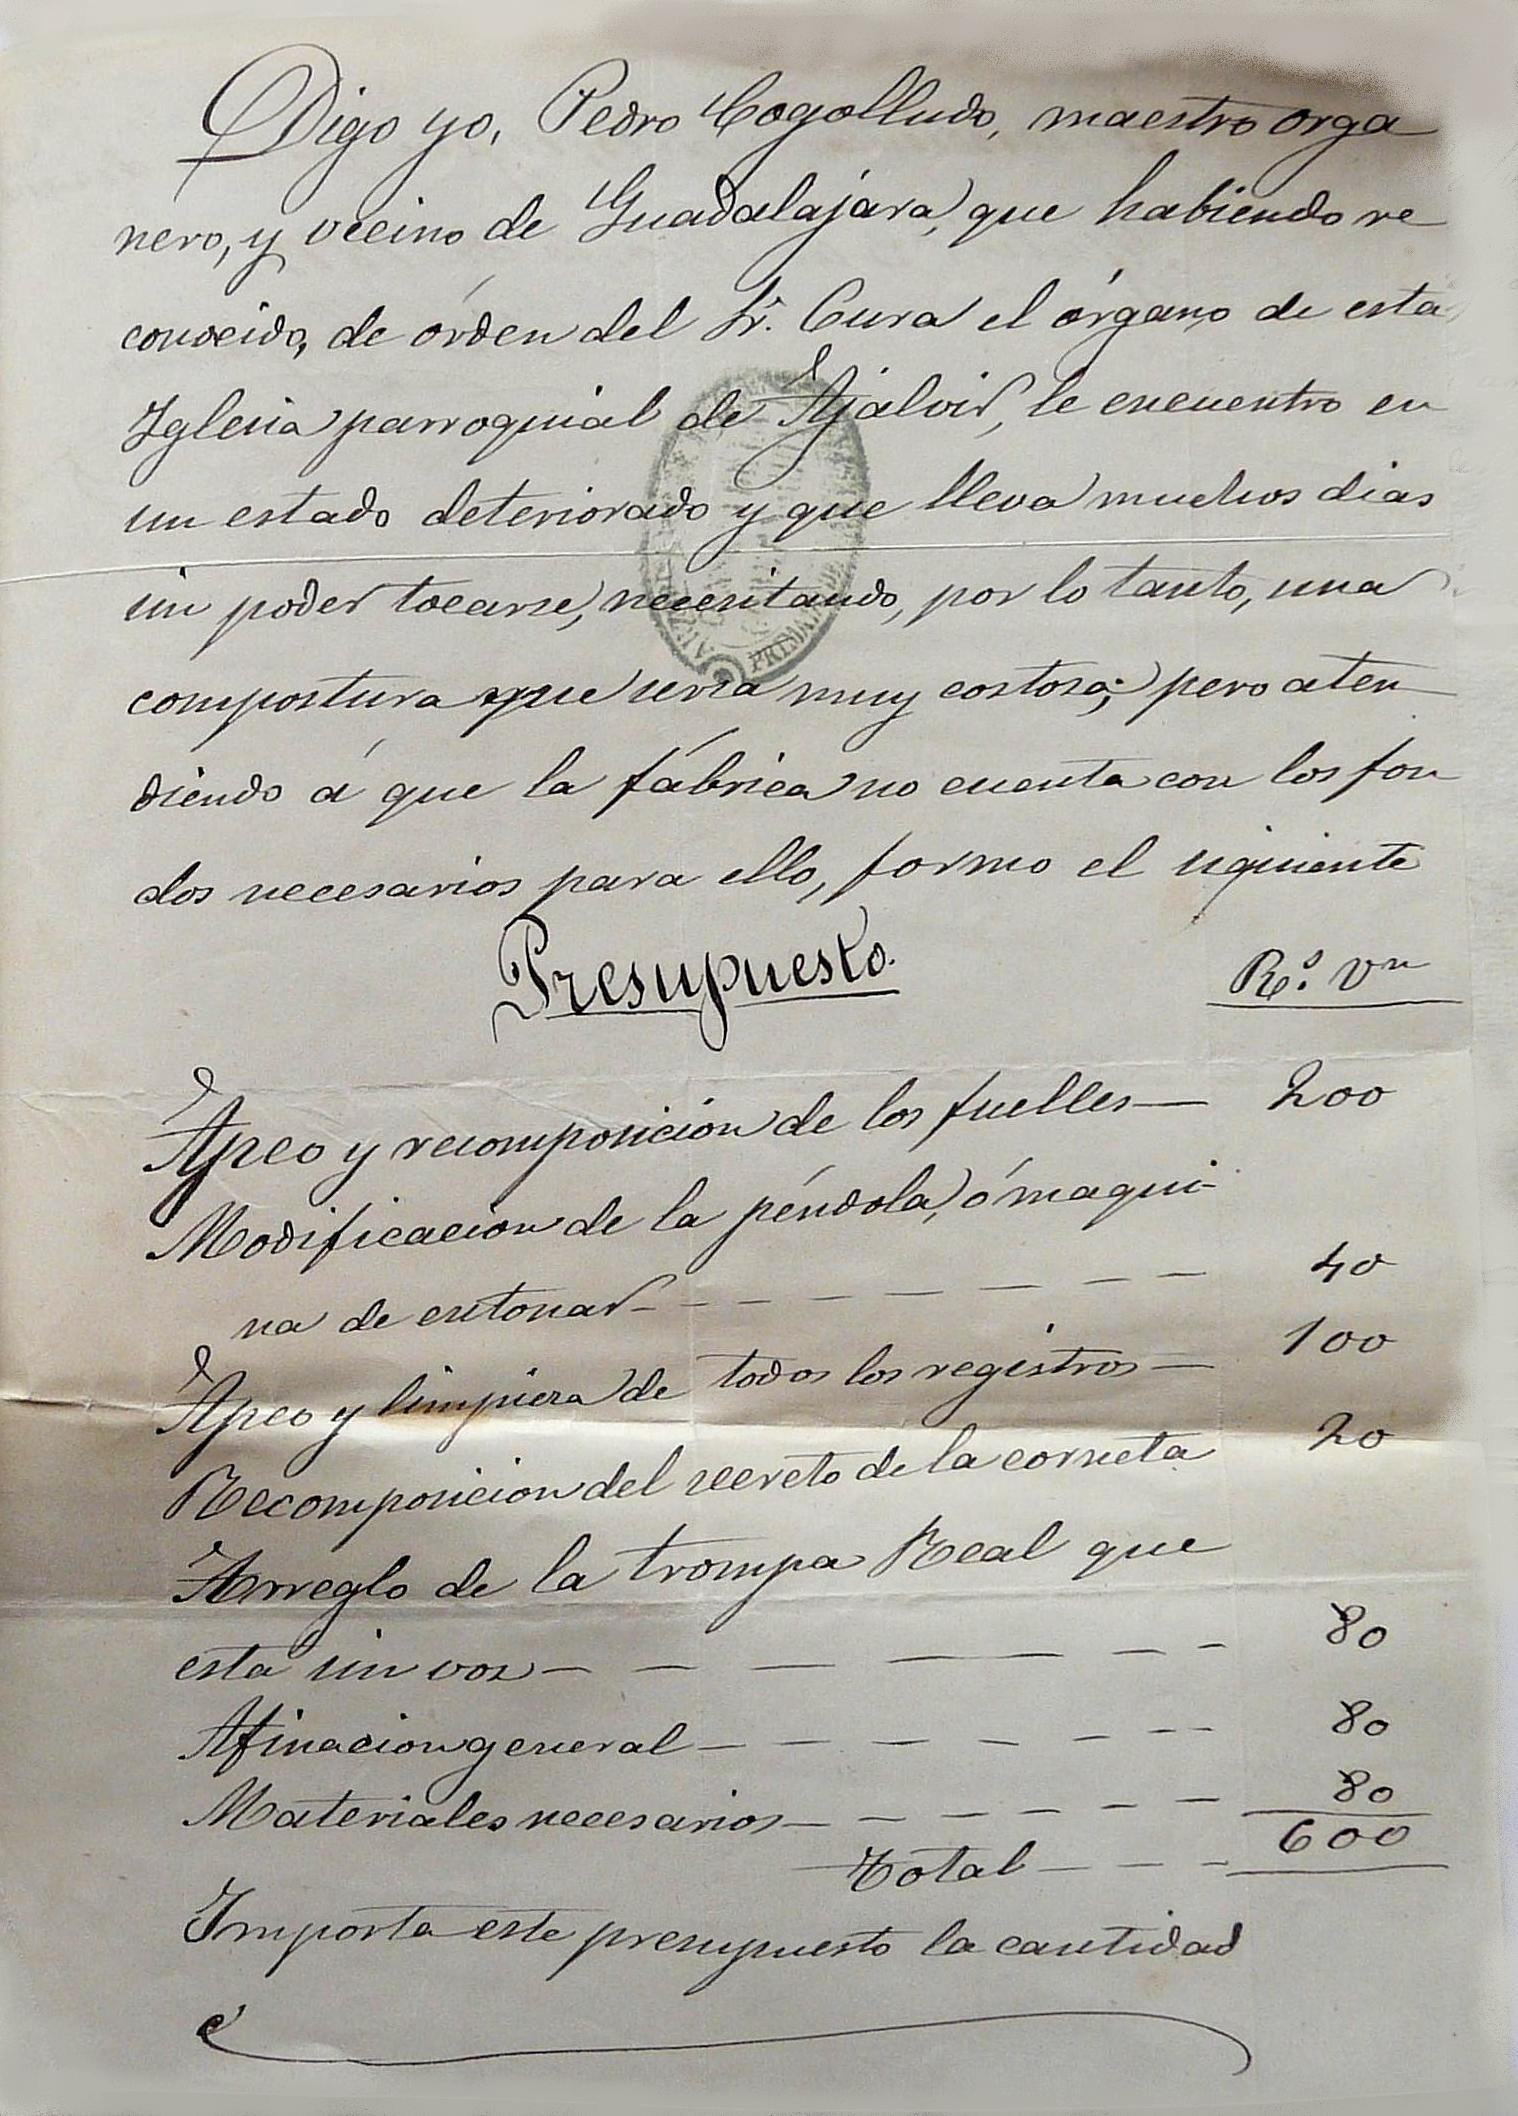 Digo yo, Pedro Cogolludo, maestro orga
nero, y vecino de Guadalajara, que habiendo re
conocido, de órden del Sr. Cura el órgano de esta
Iglesia parroquial de Ajalvir, le encuentro en
un estado deteriorado y que lleva muchos dias
sin poder tocarse, necesitando, por lo tanto, una
compostura que seria muy costosa; pero aten
diendo á que la fábrica no cuenta con los fon
dos necesarios para ello, formo el siguiente
Presupuesto. Rs. Vn
Apeo y recomposición de los fuelles — 200
Modificacion de la péndola, ó maqui-
na de entonar - - - - - - - 40
Apeo y limpieza de todos los registros — 100
Recomposicion del secreto de la corneta 20
Arreglo de la trompa Real que
esta sin voz - - - - - - - 80
Afinacion general - - - - - - - 80
Materiales necesarios - - - - - - 80
Total - - - 600
Importa este presupuesto la cantidad
PRIMA